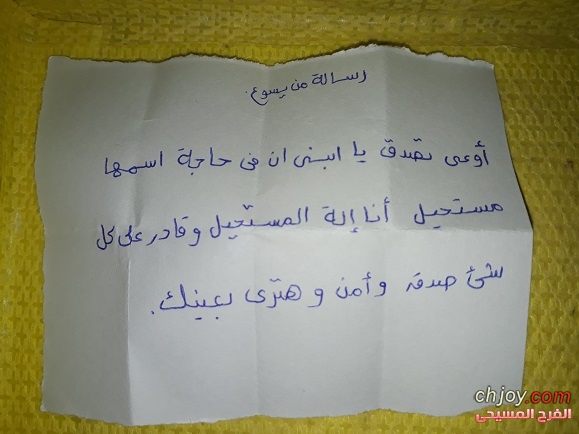 رسالة من يسوع.
أوعى تصدق يا ابنى ان فى حاجة اسمها
مستحيل أنا إلة المستحيل وقادر على كل
شئ صدق وأمن وهترى بعينك.
chjoy.com
الفرح المسيحى